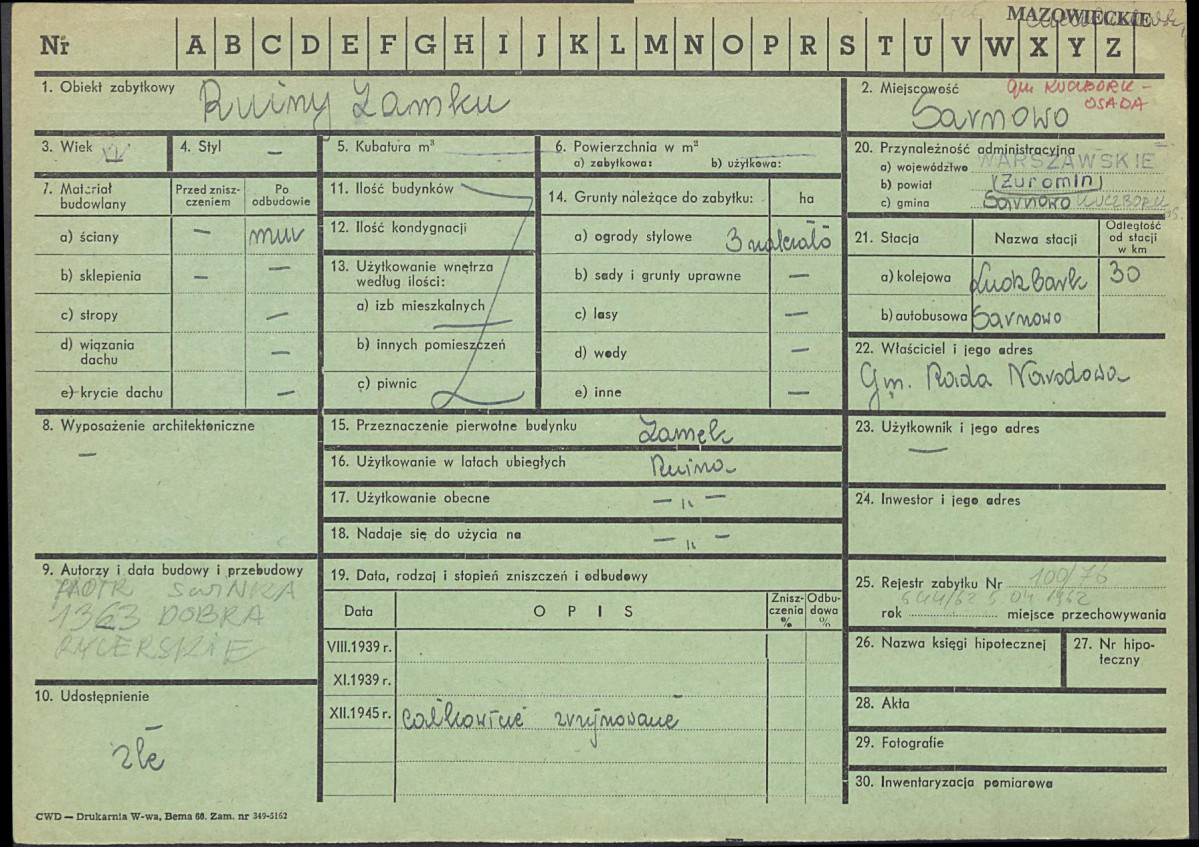 MAZOWIECKIE
Nr A B C D E F G H I J K L M N O P R S T U V W X Y Z
1. Obiekt zabytkowy Ruiny Zamku
2. Miejscowość gm KUCZBORK-
OSADA
Sarnowo
3. Wiek
4. Styl —
5. Kubatura m³
6. Powierzchnia w m²
a) zabytkowa: b) użytkowa:
20. Przynależność administracyjna
a) województwo WARSZAWSKIE
b) powiat (Żuromin)
c) gmina Sarnowo KUCZBORK
OS.
7. Materiał budowlany
Przed znisz-
czeniem
Po
odbudowie
a) ściany — mur
b) sklepienia — —
c) stropy —
d) wiązania
dachu —
e) krycie dachu —
11. Ilość budynków
12. Ilość kondygnacji
13. Użytkowanie wnętrza
według ilości:
a) izb mieszkalnych
b) innych pomieszczeń
c) piwnic
14. Grunty należące do zabytku: ha
a) ogrody stylowe
b) sady i grunty uprawne —
c) lasy —
d) wody —
e) inne —
21. Stacja Nazwa stacji
Odległość
od stacji
w km
a) kolejowa 30
b) autobusowa Sarnowo
22. Właściciel i jego adres
Gm. Rada Narodowa
8. Wyposażenie architektoniczne
—
15. Przeznaczenie pierwotne budynku Zamek
16. Użytkowanie w latach ubiegłych Ruina
17. Użytkowanie obecne — „ —
18. Nadaje się do użycia na — „ —
23. Użytkownik i jego adres
—
24. Inwestor i jego adres
9. Autorzy i data budowy i przebudowy
PIOTR SWINKA
1363 DOBRA
RYCERSKIE
10. Udostępnienie
złe
19. Data, rodzaj i stopień zniszczeń i odbudowy
Data OPIS
Znisz-
czenia
%
Odbu-
dowa
%
VIII.1939 r.
XI.1939 r.
XII.1945 r. całkowicie zrujnowane
25. Rejestr zabytku Nr 100/76
644/62 5 04 1962
rok miejsce przechowywania
26. Nazwa księgi hipotecznej
27. Nr hipo-
teczny
28. Akta
29. Fotografie
30. Inwentaryzacja pomiarowa
CWD — Drukarnia W-wa, Bema 60. Zam. nr 349-5162